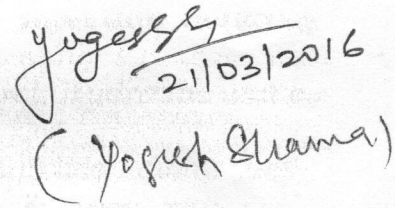 Yogesh
21/03/2016
(Yogesh Sharma)